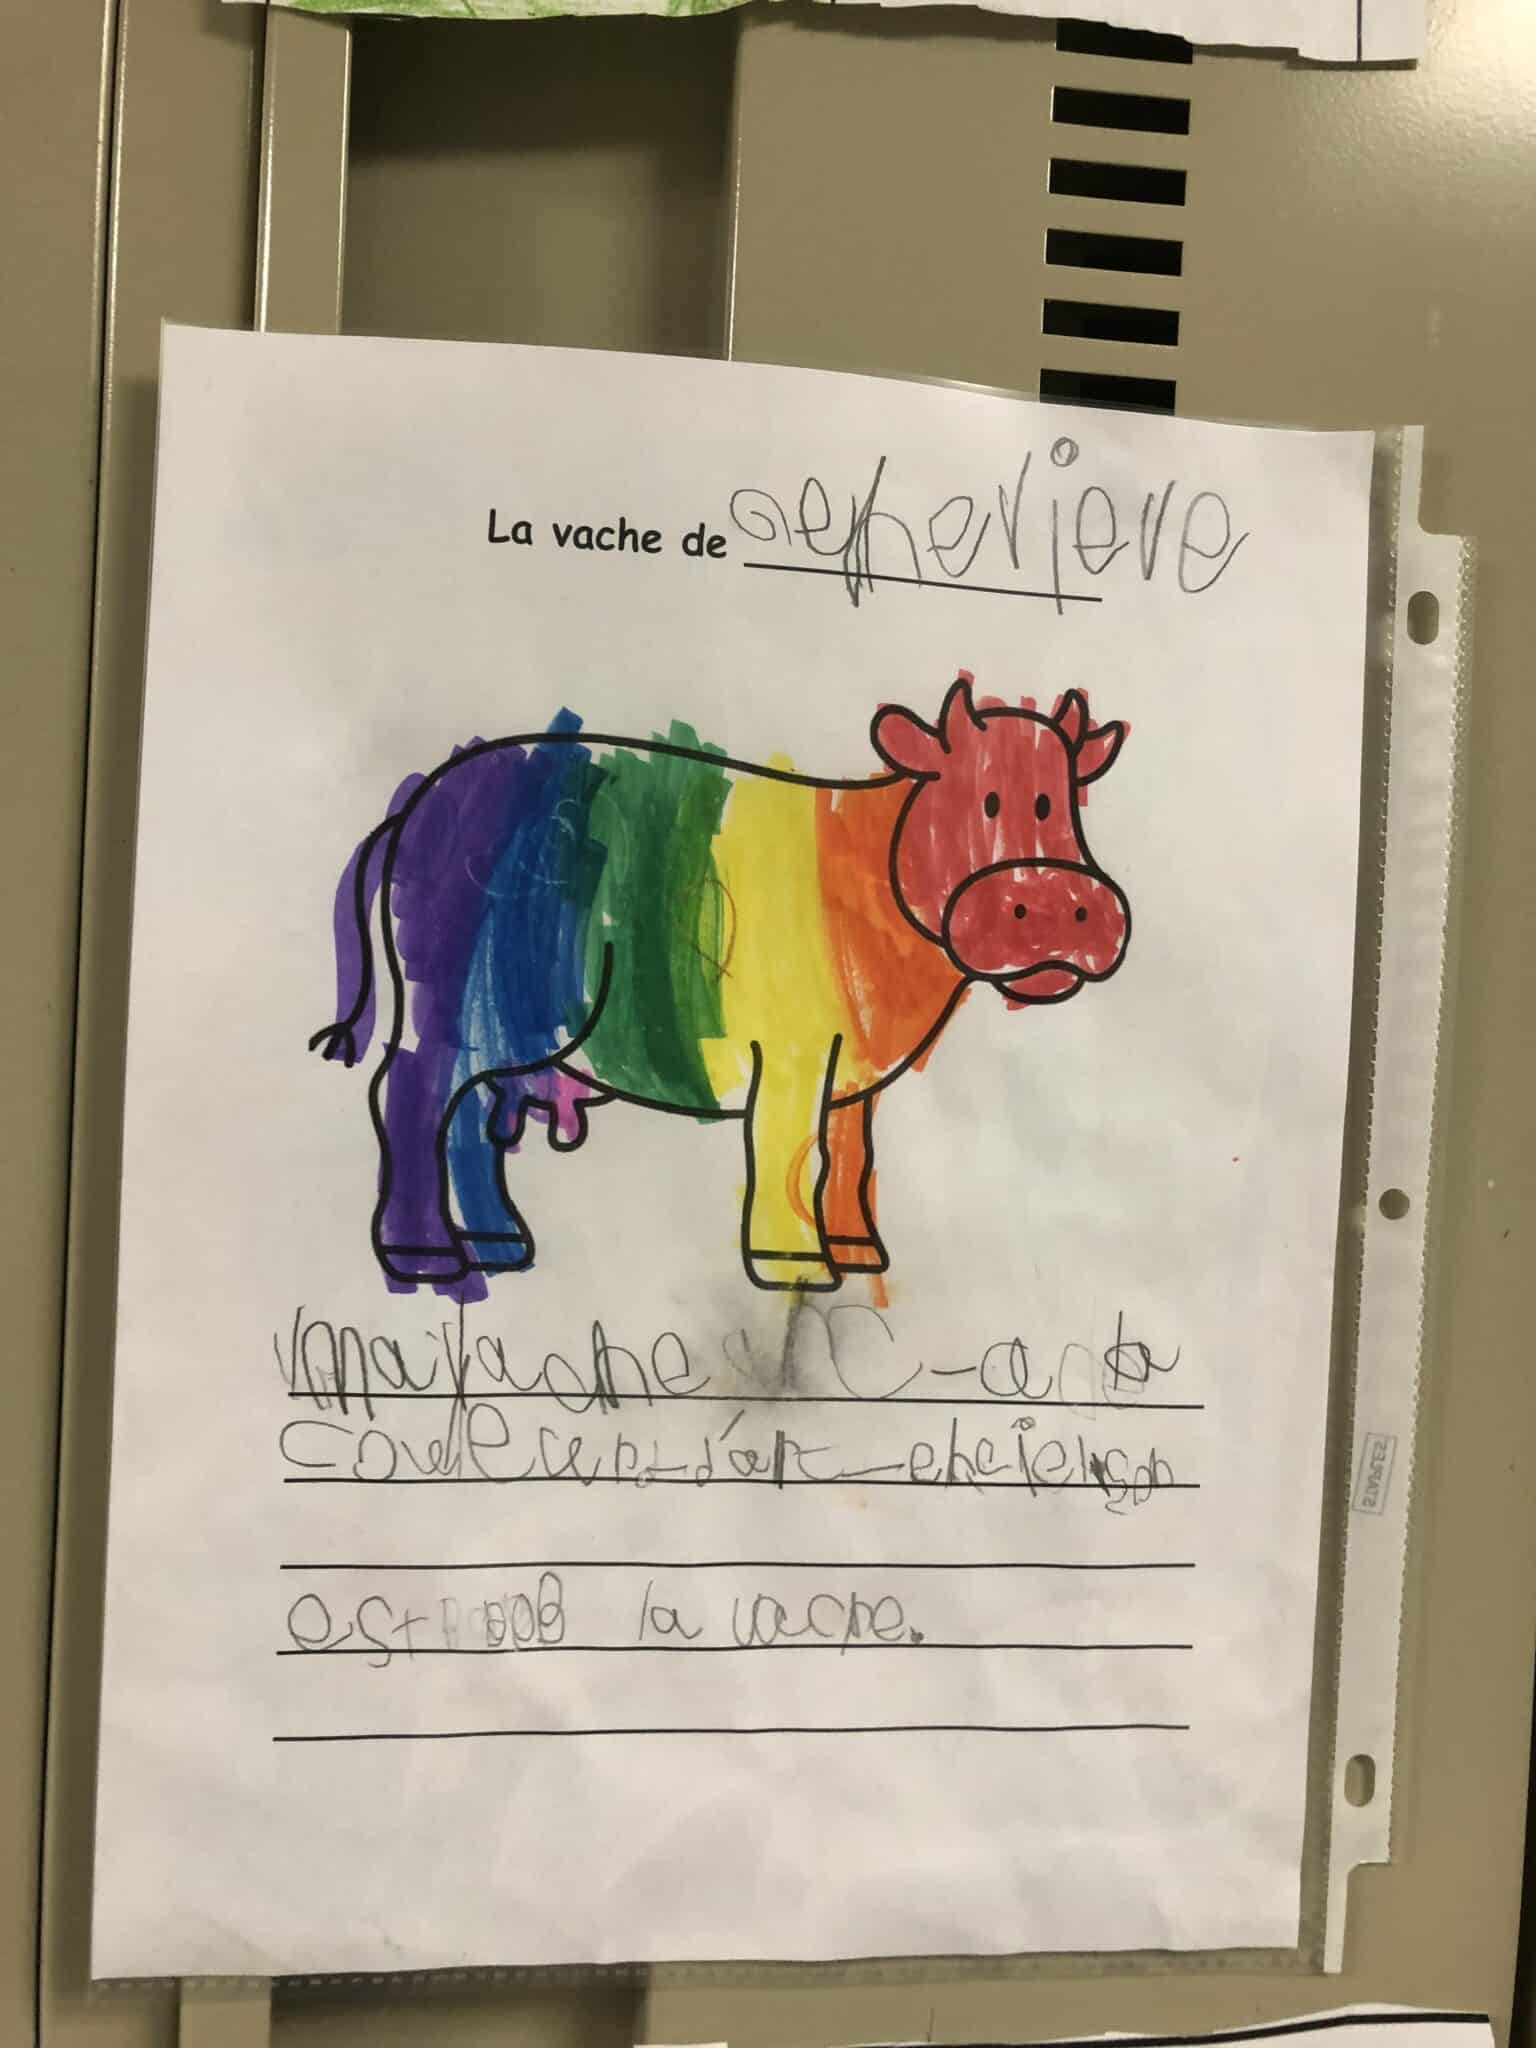 La vache de Genevieve
ma vache C-a la
couleur d'art-enciel son
est la vache.
STAPLES